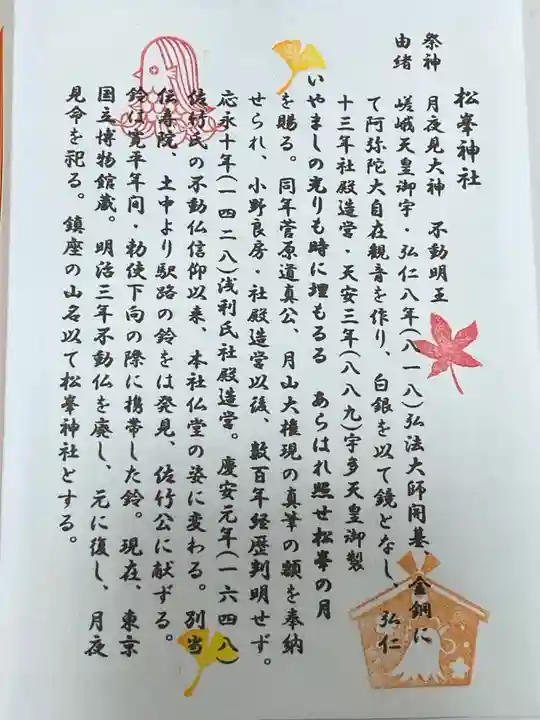 松峯神社
祭神　月夜見大神　不動明王
由緒　嵯峨天皇御宇・弘仁八年(八一八)弘法大師開基、金銅に
て阿弥陀大自在観音を作り、白銀を以て鏡となし、弘仁
十三年社殿造営・天安三年(八八九)宇多天皇御製
いやましの光りも時に埋もるる　あらはれ照せ松峯の月
を賜る。同年菅原道真公、月山大権現の真筆の額を奉納
せられ、小野良房・社殿造営以後、数百年経歴判明せず。
応永十年(一四二八)浅利氏社殿造営。慶安元年(一六四八)
佐竹氏の不動仏信仰以来、本社仏堂の姿に変わる。別当
伝寿院、土中より駅路の鈴をは発見、佐竹公に献ずる。
鈴は寛平年間・勅使下向の際に携帯した鈴。現在、東京
国立博物館蔵。明治三年不動仏を廃し、元に復し、月夜
見命を祀る。鎮座の山名以て松峯神社とする。